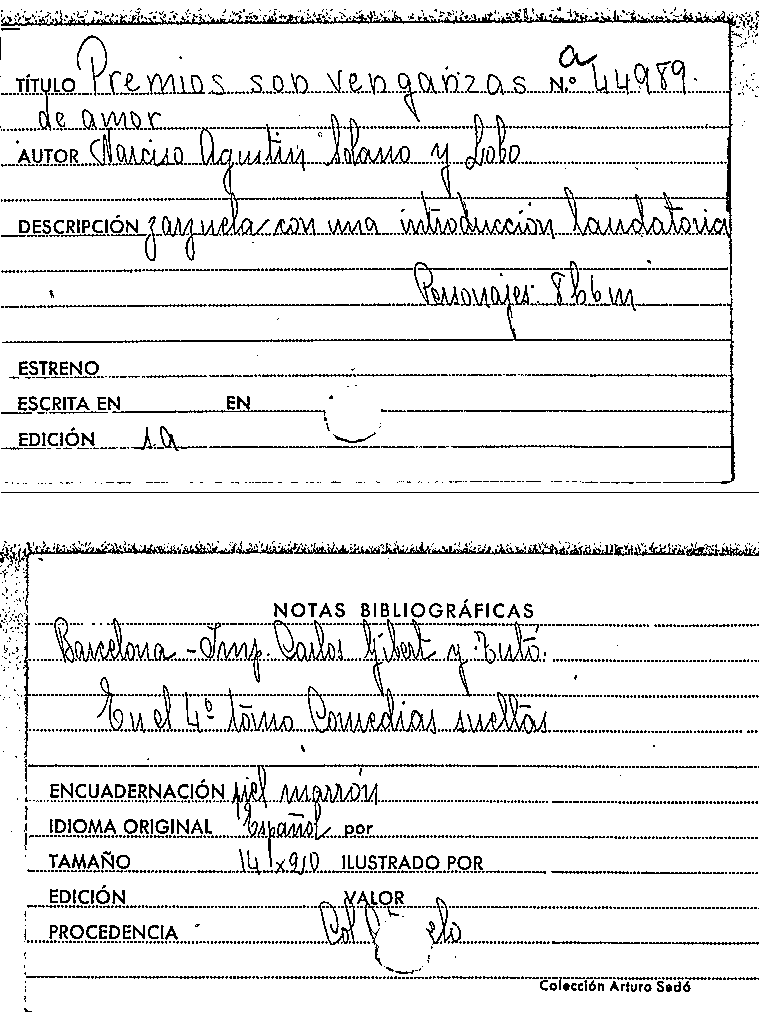 a
TÍTULO Premios son venganzas N.º 44989.
de amor
AUTOR Narciso Agustín Solano y Lobo
DESCRIPCIÓN zarzuela con una introducción laudatoria
Personajes: 8h6m
ESTRENO
ESCRITA EN EN
EDICIÓN s.a
NOTAS BIBLIOGRÁFICAS
Barcelona - Imp. Carlos Gibert y Tutó.
En el 4º tomo Comedias sueltas
ENCUADERNACIÓN piel marrón
IDIOMA ORIGINAL Español por
TAMAÑO ILUSTRADO POR
EDICIÓN VALOR
PROCEDENCIA Col
Colección Arturo Sedó